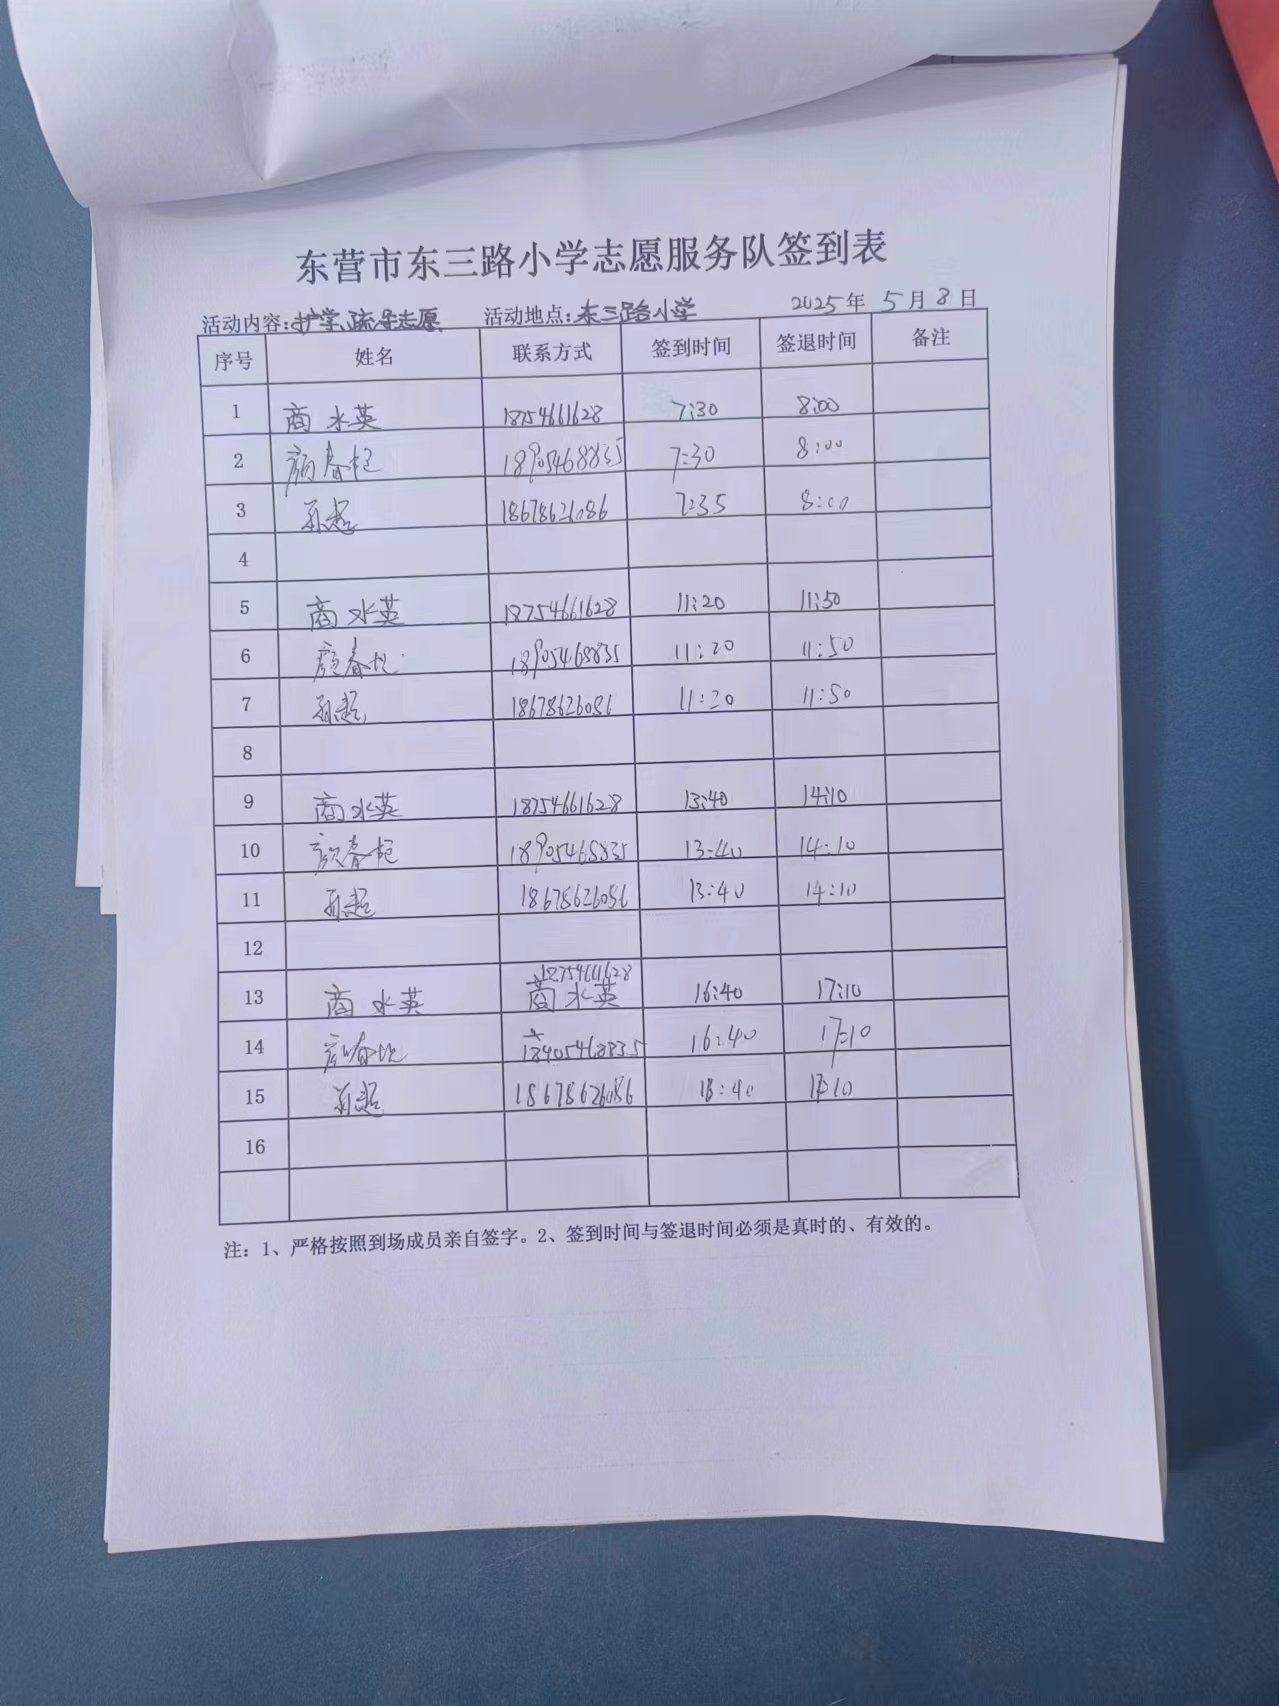 东营市东三路小学志愿服务队签到表
活动内容:护学、疏导志愿 活动地点:东三路小学 2025年 5月8日
序号 姓名 联系方式 签到时间 签退时间 备注
1 商水英 18754661628 7:30 8:00
2 颜春 18905468835 7:30 8:00
3 孙超 18678626086 7:35 8:00
4
5 商水英 18754661628 11:20 11:50
6 颜春 18905468835 11:20 11:50
7 孙超 18678626086 11:20 11:50
8
9 商水英 18754661628 13:40 14:10
10 颜春 18905468835 13:40 14:10
11 孙超 18678626086 13:40 14:10
12
13 商水英 18754661628 商水英 16:40 17:10
14 颜春 18905468835 16:40 17:10
15 孙超 18678626086 16:40 17:10
16
注：1、严格按照到场成员亲自签字。2、签到时间与签退时间必须是真时的、有效的。